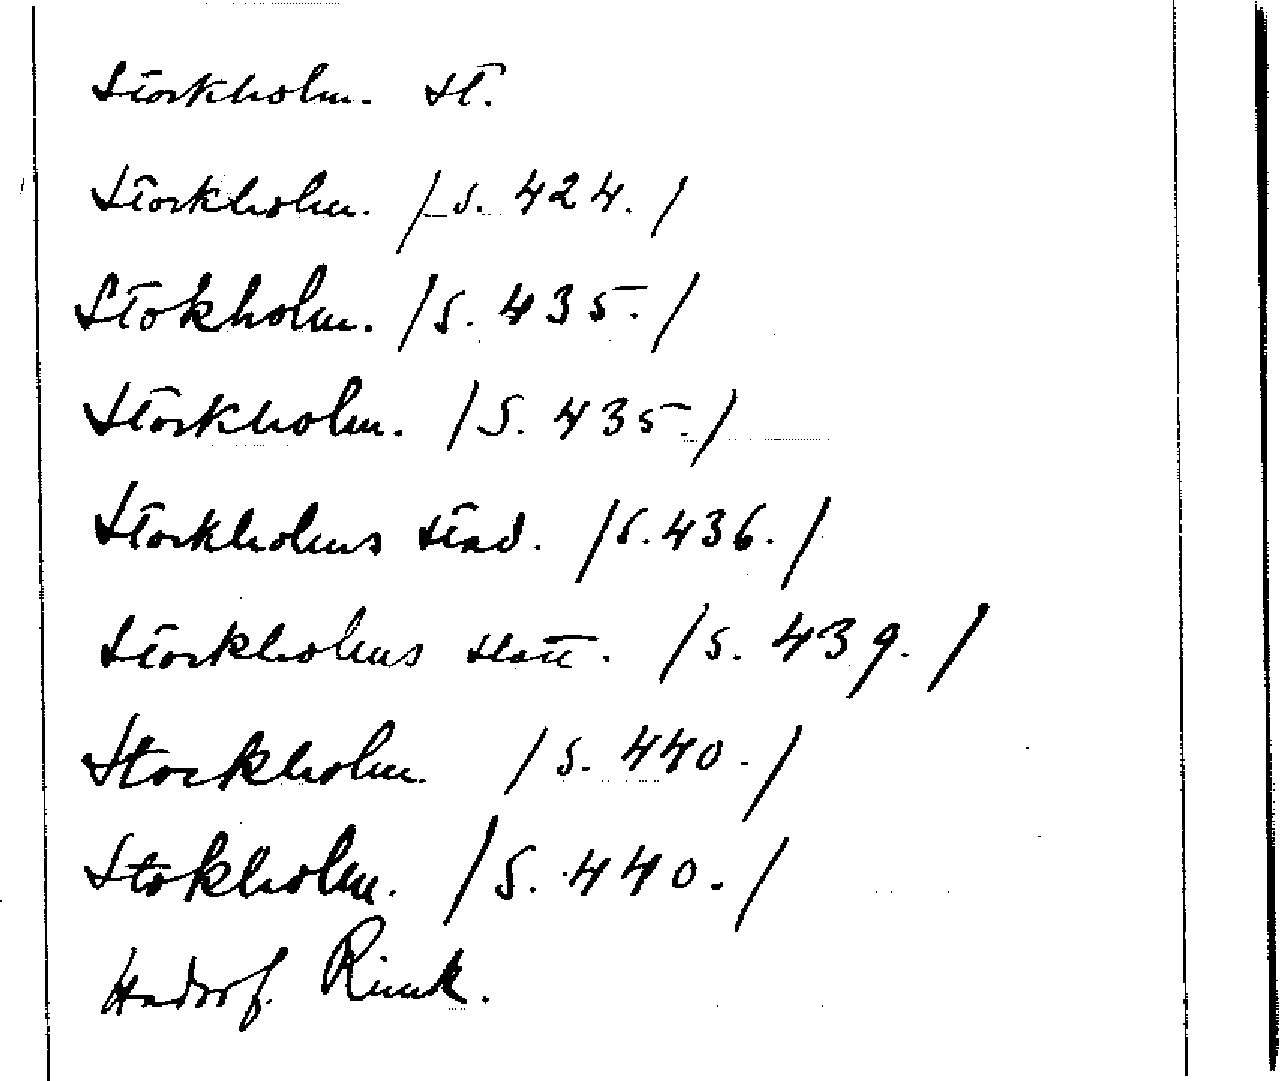 Stockholm. St.
Stockholm. /S. 424./
Stokholm. /S. 435./
Stockholm. /S. 435./
Stockholms stad. /S. 436./
Stockholms slott. /S. 439./
Stockholm /S. 440./
Stokholm. /S. 440./
Hadorf. Rimk.